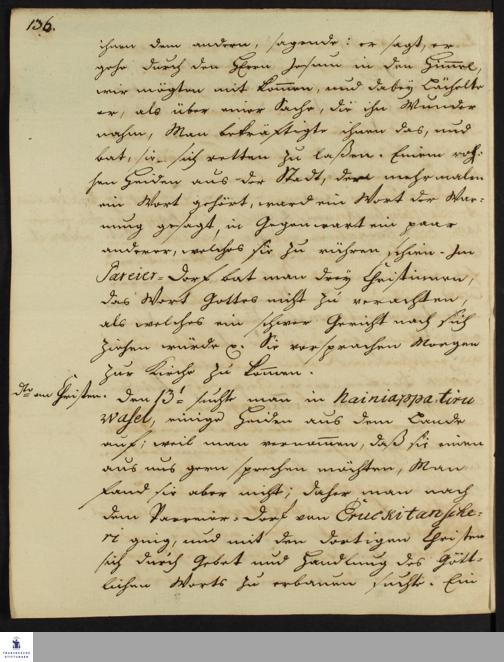 136.
ihnen dem andern, sagende: er sagt, er
gehe durch den HErrn Jesum in den Himmel,
wir mögten mit kommen, und dabey lächelte
er, als über einer Sache, die ihn Wunder
nahm, Man bekräftigte ihnen das, und
bat, sie sich retten zu laßen. Einem
Heiden aus der Stadt, der mehrmalen
ein Wort gehört, ward ein Wort der War-
nung gesagt, in Gegenwart ein paar
anderer, welches sie zu rühren schien. Im
Pareier-Dorf bat man drey Christinnen,
das Wort Gottes nicht zu verachten,
als welches ein schwer Gericht nach sich
ziehen würde p. Sie versprachen Morgen
zur Kirche zu kommen.
Dto an Christen. Den 13t suchte man in Nainiappa-tiru
wasel, einige Heiden aus dem Lande
auf; weil man vernommen, daß sie einen
aus uns gern sprechen möchten, Man
fand sie aber nicht; daher man nach
dem Parreier-Dorf von Eruckitansche-
ri gieng, und mit den dortigen Christen
sich durch Gebet und Handlung des Gött-
lichen Worts zu erbauen suchte. Ein
FRANCKESCHE
STIFTUNGEN